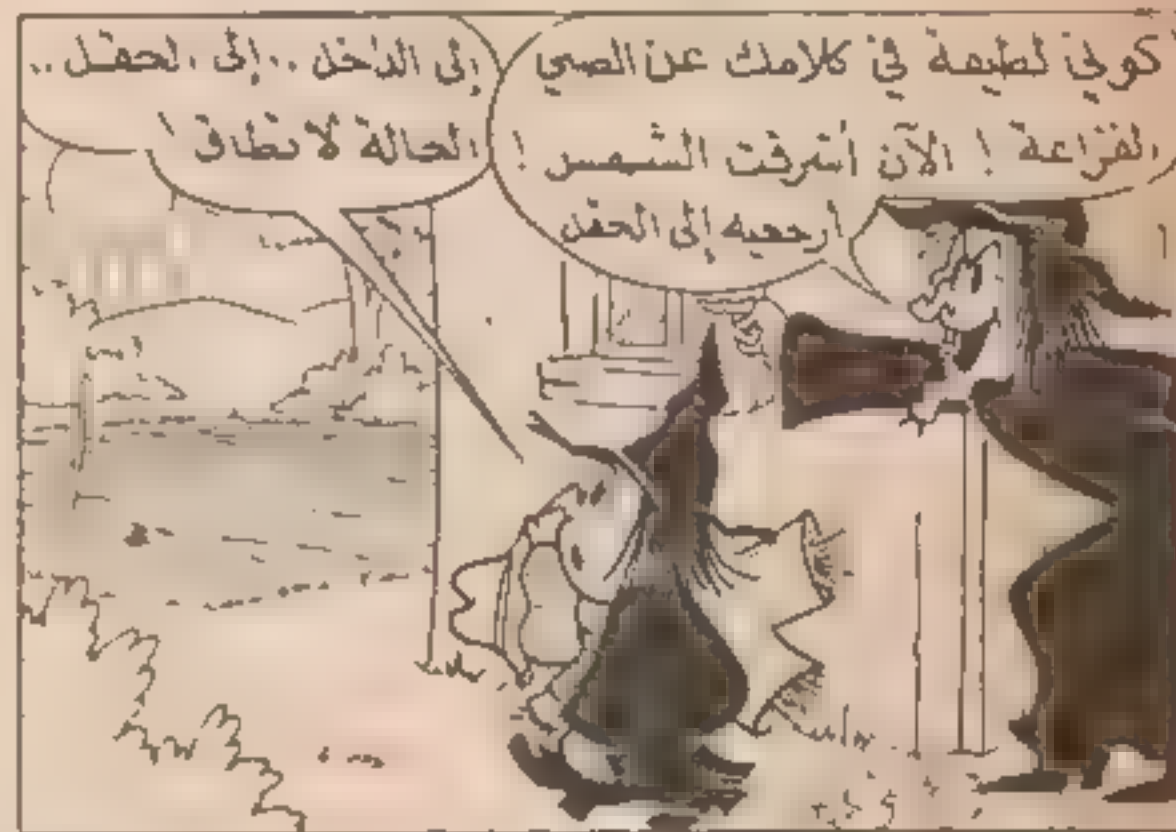 كوني لطيفة في كلامك عن الصبي
الفزاعة ! الآن أشرقت الشمس !
أرجعيه إلى الحقل
إلى الداخل .. إلى الحقل ..
الحالة لا تطاق !